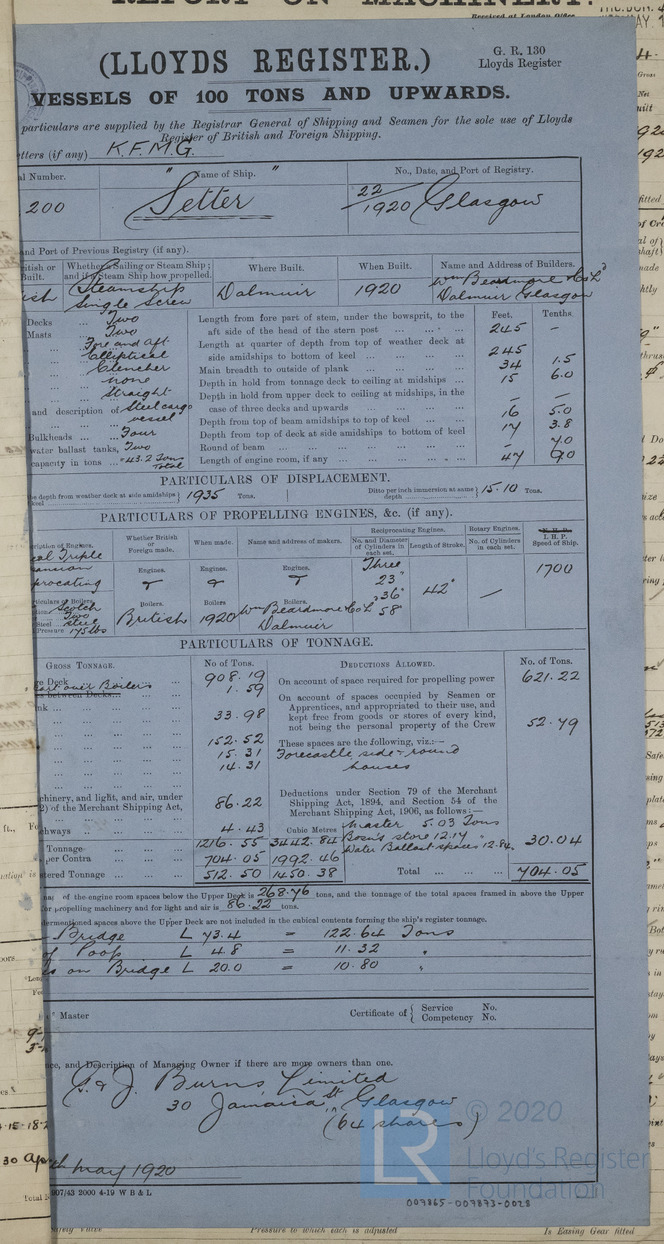 REPORT ON MACHINERY.
Received at London Office
(LLOYDS REGISTER.)
G. R. 130
Lloyds Register
VESSELS OF 100 TONS AND UPWARDS.
particulars are supplied by the Registrar General of Shipping and Seamen for the sole use of Lloyds
Register of British and Foreign Shipping.
etters (if any) K.F.M.G.
al Number. Name of Ship. No., Date, and Port of Registry.
200 " Setter " 22/1920 Glasgow
and Port of Previous Registry (if any).
ritish or Built. Whether Sailing or Steam Ship; and if Steam Ship how propelled. Where Built. When Built. Name and Address of Builders.
ish Steamship Single Screw Dalmuir 1920 Wm Beardmore & Co Ld Dalmuir Glasgow
Decks ... Two
Masts ... Two
Fore and aft
Elliptical
Clencher
none
Straight
and description of Steel cargo vessel
Bulkheads ... Four
water ballast tanks, Two
capacity in tons ... 43.2 Tons Total
Feet. Tenths.
Length from fore part of stem, under the bowsprit, to the
aft side of the head of the stern post ... 245 —
Length at quarter of depth from top of weather deck at
side amidships to bottom of keel ... 245
Main breadth to outside of plank ... 34 1.5
Depth in hold from tonnage deck to ceiling at midships ... 15 6.0
Depth in hold from upper deck to ceiling at midships, in the
case of three decks and upwards ... — —
Depth from top of beam amidships to top of keel ... 16 5.0
Depth from top of deck at side amidships to bottom of keel 17 3.8
Round of beam ... — 7.0
Length of engine room, if any ... 47 9.0
PARTICULARS OF DISPLACEMENT.
depth from weather deck at side amidships 1935 Tons. Ditto per inch immersion at same depth 15.10 Tons.
PARTICULARS OF PROPELLING ENGINES, &c. (if any).
cription of Engines. Whether British or Foreign made. When made. Name and address of makers. Reciprocating Engines. Rotary Engines. N.H.P.
No. and Diameter of Cylinders in each set. Length of Stroke. No. of Cylinders in each set. I.H.P. Speed of Ship.
cal Triple
pansion
procating
Engines. Engines. Engines.
Three
23"
36"
58"
42"
—
1700
rticulars of Boilers.
Scotch
Two
Steel
Pressure 175 lbs
Boilers. Boilers. Boilers.
British 1920 Wm Beardmore & Co Ld
Dalmuir
PARTICULARS OF TONNAGE.
GROSS TONNAGE. No of Tons. DEDUCTIONS ALLOWED. No. of Tons.
ge Deck ... 908.19
over Boilers 1.59
ce between Decks...
nk ... 33.98
152.52
15.31
14.31
chinery, and light, and air, under
2) of the Merchant Shipping Act, 86.22
chways ... 4.43
Cubic Metres
Tonnage ... 1216.55 3442.84
per Contra ... 704.05 1992.46
tered Tonnage ... 512.50 1450.38
On account of space required for propelling power 621.22
On account of spaces occupied by Seamen or
Apprentices, and appropriated to their use, and
kept free from goods or stores of every kind,
not being the personal property of the Crew 52.79
These spaces are the following, viz.:—
Forecastle side & round
houses
Deductions under Section 79 of the Merchant
Shipping Act, 1894, and Section 54 of the
Merchant Shipping Act, 1906, as follows:—
Master 5.03 Tons
Bosn's store 12.17 "
Water Ballast spaces 12.84 30.04
Total ... 704.05
of the engine room spaces below the Upper Deck is 268.76 tons, and the tonnage of the total spaces framed in above the Upper
for propelling machinery and for light and air is 86.22 tons.
dermentioned spaces above the Upper Deck are not included in the cubical contents forming the ship's register tonnage.
Bridge L 73.4 = 122.64 Tons
of Poop L 4.8 = 11.32 "
on Bridge L 20.0 = 10.80 "
Master
Certificate of { Service No.
Competency No.
ce, and Description of Managing Owner if there are more owners than one.
G. & J. Burns Limited
30 Jamaica St Glasgow
(64 shares)
May 1920
907/43 2000 4-19 W B & L
LR
© 2020
Lloyd's Register
Foundation
007865-007873-0028
Safety Valve Pressure to which each is adjusted Is Easing Gear fitted